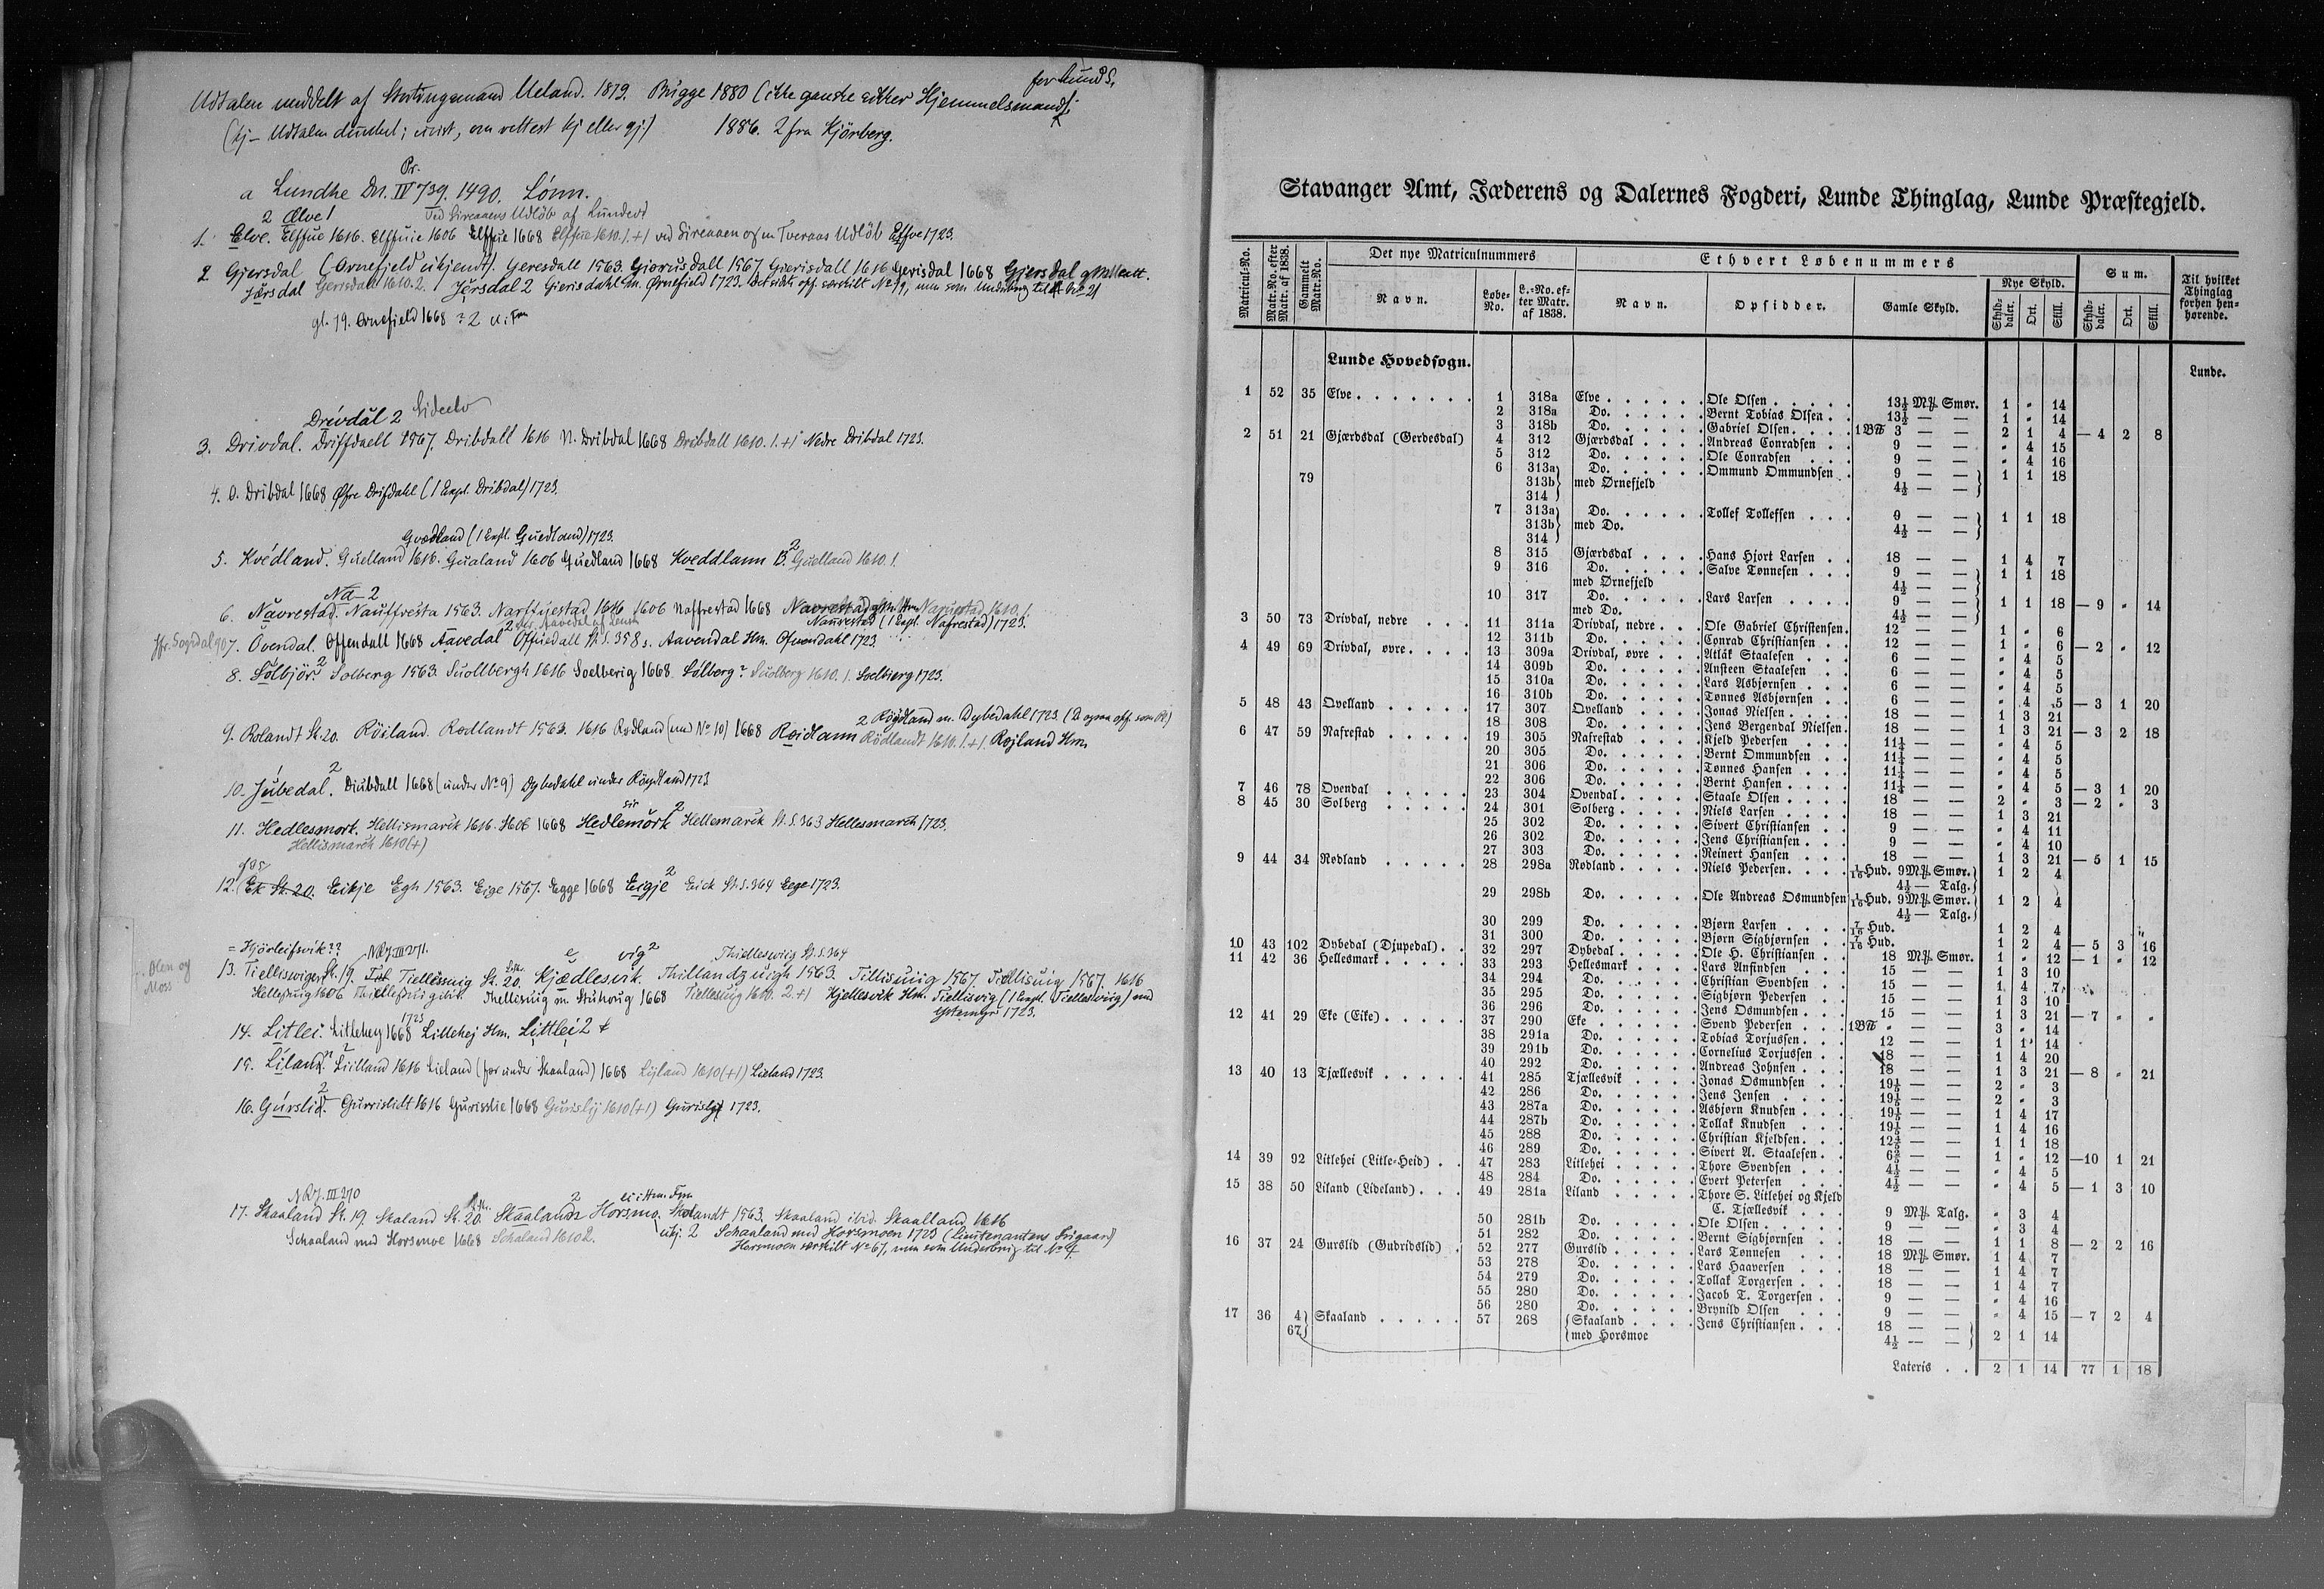 for Lunds.
Udtalen meddelt af Stortingsmand Ueland. 1879. Brügge 1880 (ikke ganske sikker Hjemmelsmand);
(kj – Udtalen dunkel; uvist, om rettest kj eller gj.) 1886. 2 fra Kjörberg.
Pr.
a Lundhe Dn. IV 739. 1490. Lónn.
2 Ælve!
1. Elve. Elffue 1616. Elffuie 1606 Elffue 1668 Elffue 1610.1.+1 ved Sireaaen Udlöb Elfve 1723.
2 Gjersdal (Ornefield ukjendt). Geresdall 1563. Giorusdall 1567. Gierisdall 1616 Gerisdal 1668 Giersdal
Jǿrsdal Gerisdall 1610.2. Jǿrsdal 2 Gierisdahl m. Ørnefield 1723.
gl. 79. Ornefield 1668
Drivdål 2
3. Drivdal. Driffdaell 1567. Dribdall 1616 N. Dribdal 1668 Dribdall 1610.1.+1 Nedre Dribdal 1723.
4. O. Dribdal 1668 Øfre Drifdahl (1 Expl. Dribdal) 1723.
Gvedland (1 Expl. Guedland) 1723.
5. Kvédland. Guelland 1616. Gualand 1606 Guedland 1668 Kveddlann B. 2 Guelland 1610.1.
Na–2
6. Nåvrestad. Nauffresta 1563. Narffuestad 1616 1606 Naffrestad 1668
Naurestad (1 Expl. Nafrestad) 1723.
7. Óvendal. Offendall 1668 Åavedal 2 Offuedall St. S. 358 s. Aavendal Hm. Ofvendahl 1723.
8. Sólbjör. 2 Solberg 1563. Suollbergh 1616 Soelberig 1668. Sólberg? Suolberg 1610.1. Soelbierg 1723.
2 Röydland m. Dybedahl 1723.
9. Rolandt St. 20. Röiland. Rodlandt 1563. 1616 Rødland (med No 10) 1668 Røidlann Rödlandt 1610.1.+1 Rojland Hm.
10. Júbedal. 2 Diubdall 1668 (under No 9) Dybedahl under Röydland 1723
11. Hedlesmork. Hellismarck 1616. 1668 Hedlemörk 2 Hellemarck St. S. 363 Hellesmarch 1723.
Hellismarch 1610 (+)
12. Ek St. 20. Eikje Egh 1563. Eige 1567. Egge 1668 Eigje 2 Eick St. S. 364 Eege 1723.
= Hjörleifsvík?? N Rj. III 271. Thielleswiig St. S. 364
13. Tielleswiger St. 19. Tiellesuig St. 20. Kjædlesvik. Thillandzuigh 1563. Tillisuiig 1567. Tiellisuiig 1567. 1616
Thellisuig m. Stuhoug 1668 Tiellesuig 1610. 2.+1 Kjellesvik Hm. Tiellisvig (1 Expl. Tielleswiig) med
1723.
14. Litlei. Litlehey 1668 Lillehej Hm. Littlei 2
15. Líland. 2 Liilland 1616 Lieland (før under Skaaland) 1668 Lijland 1610 (+1) Lieland 1723.
16. Gúrslid. 2 Gurrislidt 1616 Gurisslie 1668 Gurislij 1610 (+1) Gurislij 1723.
N Rj. III 270
17. Skaaland St. 19. Skaland St. 20. Skaalann 2 Horsmo. Skalandt 1563. Skaaland ibid. Skaalland 1616
Schaaland med Horsmoe 1668 Schaland 1610 2. ukj. 2 Schaaland med Horsmoen 1723 (Lieutenantens Frigaard)
Horsmoen særskilt No 67, men som Underbrug til No 4
Stavanger Amt, Jæderens og Dalernes Fogderi, Lunde Thinglag, Lunde Præstegjeld.
Matricul-No.
Matr.-No. efter Matr. af 1838.
Gammelt Matr.-No.
Det nye Matriculnummers
Ethvert Løbenummers
Sum.
Til hvilket Thinglag forhen henhørende.
Navn. Løbe-No. L.-No. efter Matr. af 1838. Navn. Opsidder. Gamle Skyld. Nye Skyld.
Skylddaler. Ort. Skill. Skylddaler. Ort. Skill.
Lunde Hovedsogn. Lunde.
1 52 35 Elve 1 318a Elve Ole Olsen 13½ M℔ Smør. 1 " 14
2 318a Do. Bernt Tobias Olsen 13½ — — 1 " 14
3 318b Do. Gabriel Olsen 1 B℔ 3 — — 2 1 4 — 4 2 8
2 51 21 Gjærdsdal (Gerdesdal) 4 312 Gjærdsdal Andreas Conradsen 9 — — " 4 15
5 312 Do. Ole Conradsen 9 — — " 4 16
79 6 313a 313b 314 Do. med Ørnefjeld Ommund Ommundsen 9 — — 4½ — — 1 1 18
7 313a 313b 314 Do. med Do. Tollef Tollefsen 9 — — 4½ — — 1 1 18
8 315 Gjærdsdal Hans Hjort Larsen 18 — — 1 4 7
9 316 Do. med Ørnefjeld Salve Tønnesen 9 — — 4½ — — 1 1 18
10 317 Do. med Do. Lars Larsen 9 — — 4½ — — 1 1 18 — 9 " 14
3 50 73 Drivdal, nedre 11 311a Drivdal, nedre Ole Gabriel Christensen 12 — — 1 " 6
12 311b Do. Conrad Christiansen 12 — — 1 " 6 — 2 " 12
4 49 69 Drivdal, øvre 13 309a Drivdal, øvre Atlak Staalesen 6 — — " 4 5
14 309b Do. Ansteen Staalesen 6 — — " 4 5
15 310a Do. Lars Asbjørnsen 6 — — " 4 5
16 310b Do. Tønnes Asbjørnsen 6 — — " 4 5 — 3 1 20
5 48 43 Qvelland 17 307 Qvelland Jonas Nielsen 18 — — 1 3 21
18 308 Do. Jens Bergendal Nielsen 18 — — 1 3 21 — 3 2 18
6 47 59 Nafrestad 19 305 Nafrestad Kjeld Pedersen 11¼ — — " 4 5
20 305 Do. Bernt Ommundsen 11¼ — — " 4 5
21 306 Do. Tønnes Hansen 11¼ — — " 4 5
22 306 Do. Bernt Hansen 11¼ — — " 4 5 — 3 1 20
7 46 78 Ovendal 23 304 Ovendal Staale Olsen 18 — — 2 " 3 — 2 " 3
8 45 30 Solberg 24 301 Solberg Niels Larsen 18 — — 1 3 21
25 302 Do. Sivert Christiansen 9 — — " 4 11
26 302 Do. Jens Christiansen 9 — — " 4 10
27 303 Do. Reinert Hansen 18 — — 1 3 21 — 5 1 15
9 44 34 Rødland 28 298a Rødland Niels Pedersen 1/16 Hud. 9 M℔ Smør. 4½ — Talg. 1 2 4
29 298b Do. Ole Andreas Osmundsen 1/16 Hud. 9 M℔ Smør. 4½ — Talg. 1 2 4
30 299 Do. Bjørn Larsen 7/16 Hud. 1 2 4
31 300 Do. Bjørn Sigbjørnsen 7/16 Hud. 1 2 4 — 5 3 16
10 43 102 Dybedal (Djupedal) 32 297 Dybedal Ole H. Christiansen 18 M℔ Smør. 1 " 12 — 1 " 12
11 42 36 Hellesmark 33 293 Hellesmark Lars Ansindsen 15 — — 1 3 10
34 294 Do. Christian Svendsen 15 — — 1 4 7
35 295 Do. Sigbjørn Pedersen 15 — — 1 3 10
36 296 Do. Jens Osmundsen 15 — — 1 3 21 — 7 " "
12 41 29 Eke (Eike) 37 290 Eke Svend Pedersen 1 B℔ " — — 3 " 14
38 291a Do. Tobias Torjussen 12 — — 1 1 14
39 291b Do. Cornelius Torjussen 18 — — 1 4 20
40 292 Do. Andreas Johnsen 18 — — 1 3 21 — 8 " 21
13 40 13 Tjællesvik 41 285 Tjællesvik Jonas Osmundsen 19⅕ — — 2 " 3
42 286 Do. Jens Jensen 19⅕ — — 2 " 3
43 287a Do. Asbjørn Knudsen 19⅕ — — 1 4 17
44 287b Do. Tollak Knudsen 19⅕ — — 1 4 16
45 288 Do. Christian Kjeldsen 12⅘ — — 1 1 18
46 289 Do. Sivert A. Staalesen 6⅖ — — 1 " 12 — 10 1 21
14 39 92 Litlehei (Litle-Heid) 47 283 Litlehei Thore Svendsen 4½ — — " 4 5
48 284 Do. Evert Petersen 4½ — — " 4 5 — 1 3 10
15 38 50 Liland (Lideland) 49 281a Liland Thore S. Litlehei og Kjeld
C. Tjællesvik 9 M℔ Talg. " 3 4
50 281b Do. Ole Olsen 9 — — " 3 4
51 282 Do. Bernt Sigbjørnsen 18 — — 1 1 8 — 2 2 16
16 37 24 Gurslid (Gudridslid) 52 277 Gurslid Lars Tønnesen 18 M℔ Smør. 1 4 7
53 278 Do. Lars Haaversen 18 — — 1 4 7
54 279 Do. Tollak Torgersen 18 — — 1 4 7
55 280 Do. Jacob T. Torgersen 9 — — " 4 16
56 280 Do. Brynild Olsen 9 — — " 4 15 — 7 2 4
17 36 4 67 Skaaland 57 268 Skaaland med Horsmoe Jens Christiansen 18 — — 4½ — — 2 1 14
Lateris 2 1 14 77 1 18